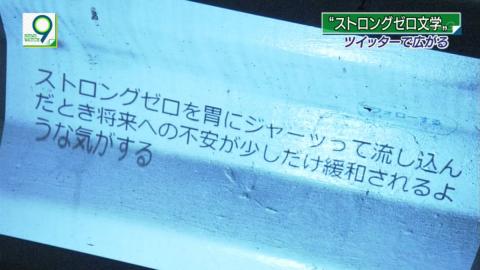 9
"ストロングゼロ文学"
ツイッターで広がる
フォローする
ストロングゼロを胃にジャーッって流し込ん
だとき将来への不安が少しだけ緩和されるよ
うな気がする